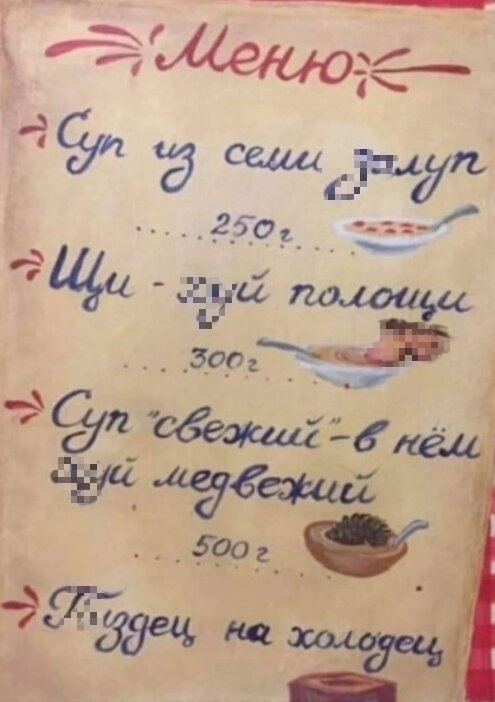 Меню
Суп из семи залуп
250г
Щи - хуй полощи
300г
Суп "свежий" - в нём
хуй медвежий
500г
Пиздец на холодец